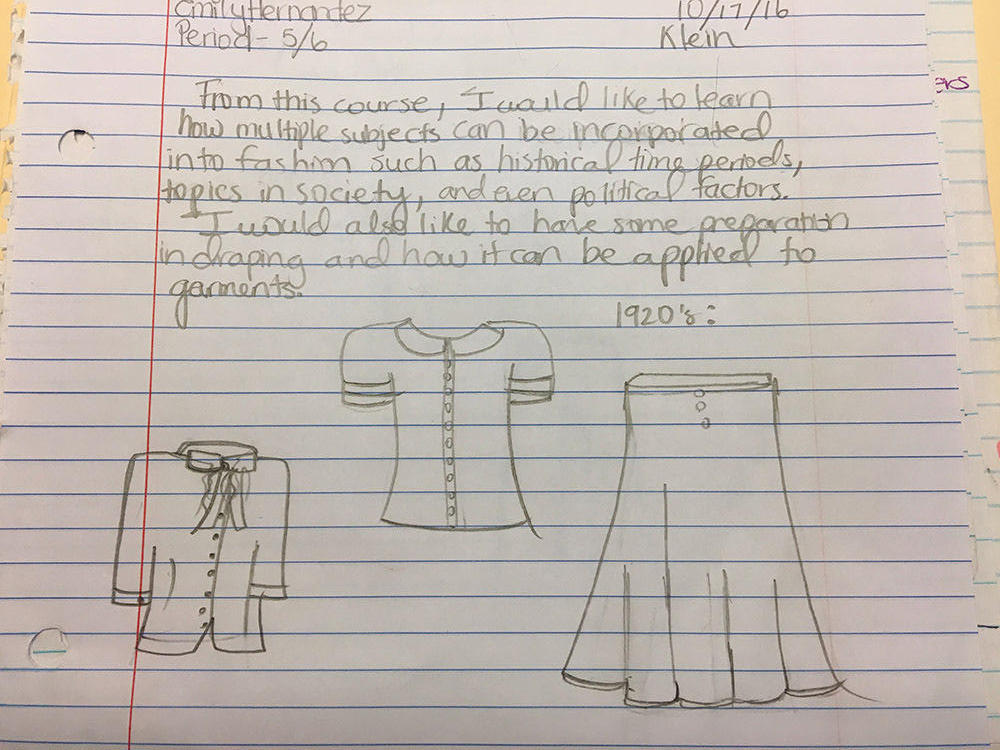 Emily Hernandez 10/17/16
Period- 5/6 Klein
From this course, I would like to learn
how multiple subjects can be incorporated
into fashion such as historical time periods,
topics in society, and even political factors.
I would also like to have some preparation
in draping and how it can be applied to
garments.
1920's: